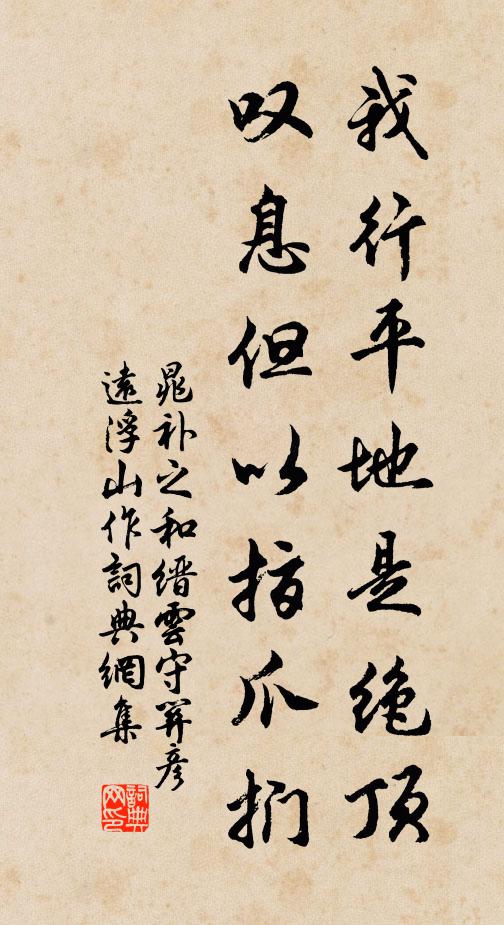 我行平地是绝顶
叹息但以指爪扪
晁补之和缙雲守關彦
遠浮山作詞典網集
詞典网印